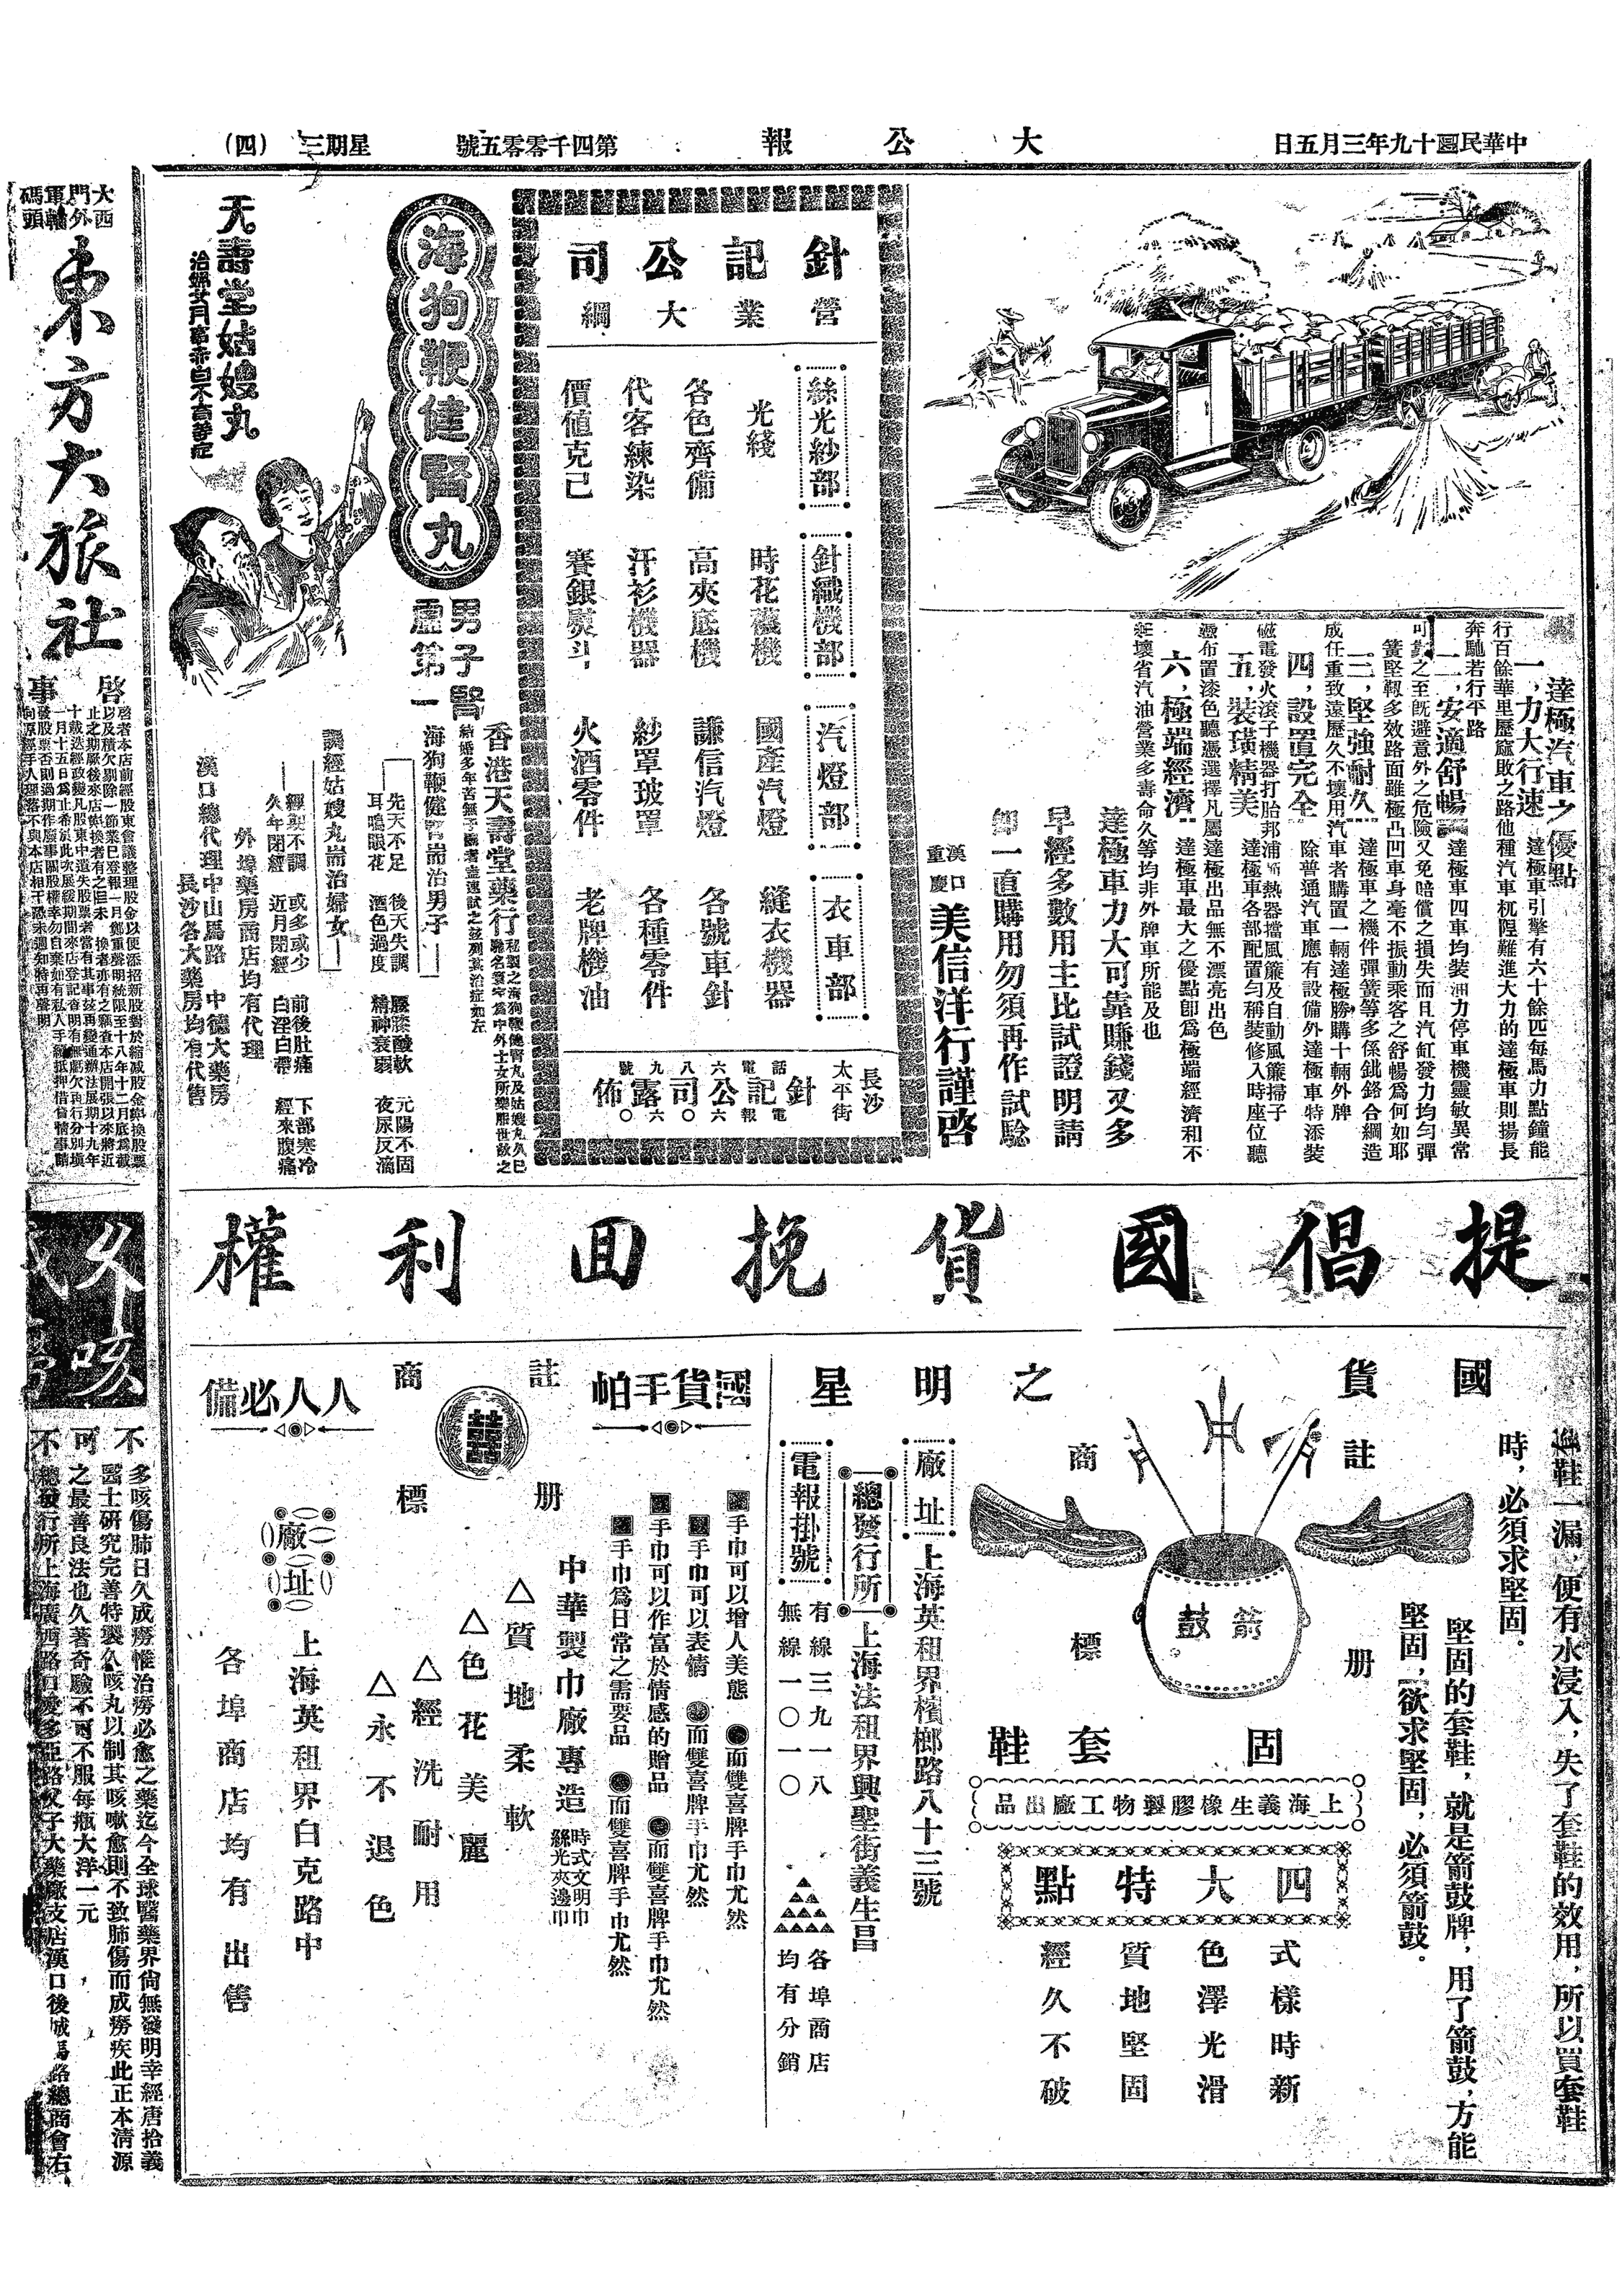 中華民國十九年三月五日
大公報
第四千零零五號
星期三
（四）
達極汽車之優點
一，力大行速 達極車引擎有六十餘匹每馬力點鐘能
行百餘華里歷窳敗之路他種汽車杌隉難進大力的達極車則揚長
奔馳若行平路
二，安適舒暢 達極車四車均裝油力停車機靈敏異常
可靠之至旣避意外之危險又免賠償之損失而且汽缸發力均勻彈
簧堅韌多效路面雖極凸凹車身毫不振動乘客之舒暢爲何如耶
三，堅強耐久 達極車之機件彈簧等多係銚鉻合綱造
成任重致遠歷久不壞用汽車者購置一輛達極勝購十輛外牌
四，設置完全 除普通汽車應有設備外達極車特添裝
磁電發火滚子機器打胎邦浦 熱器擋風簾及自動風簾掃子
五，裝璜精美 達極車各部配置勻稱裝修入時座位聽
憑布置漆色聽憑選擇凡屬達極出品無不漂亮出色
六，極端經濟 達極車最大之優點卽爲極端經濟和不
壞省汽油營業多壽命久等均非外牌車所能及也
達極車力大可靠賺錢又多
早經多數用主比試證明請
卽一直購用勿須再作試驗
漢口
重慶
美信洋行謹啓
針記公司
營業大綱
絲光紗部
光綫
各色齊備
代客練染
價値克己
針織機部
時花襪機
高夾底機
汗衫機器
賽銀熨斗
汽燈部
國產汽燈
謙信汽燈
紗罩玻罩
火酒零件
衣車部
縫衣機器
各號車針
各種零件
老牌機油
長沙
太平街
針記公司露佈
電話六八九號
電報六六〇〇
海狗鞭健腎丸
男子腎
虛第一
天壽堂姑嫂丸
治婦女月事赤白不育等症
香港天壽堂藥行
秘製之海狗鞭健腎丸及姑嫂丸久已
馳名寰宇爲中外士女所樂服世嘆之
結婚多年苦無子嗣者盍速試之玆列其治症如左
海狗鞭健腎耑治男子
先天不足 後天失調 腰膝酸軟 元陽不固
耳鳴眼花 酒色過度 精神衰弱 夜尿反滴
調經姑嫂丸耑治婦女
經製不調 或多或少 前後肚痛 下部寒冷
久年閉經 近月閉經 白淫白帶 經來腹痛
外埠藥房商店均有代理
漢口總代理中山馬路 中德大藥房
長沙各大藥房均有代售
大西門外輪軍碼頭
東方大旅社
啓事
啓者本店前經股東會議整理股金以便添招新股對於縮減股金綸換股票
以及積欠剔除一節業已登報一月鄭重聲明統限至十八年十二月底爲截
止之期厥後來店綸換者有之
提倡國貨挽回利權
國貨之明星
套鞋一漏，便有水浸入，失了套鞋的效用，所以買套鞋
時，必須求堅固。
堅固的套鞋，就是箭鼓牌，用了箭鼓，方能
堅固，欲求堅固，必須箭鼓。
註册商標
箭鼓
固套鞋
上海義生橡膠製物工廠出品
四大特點
式樣時新
色澤光滑
質地堅固
經久不破
廠址
上海英租界檳榔路八十三號
總發行所
上海法租界興聖街義生昌
電報掛號
有線三九一八
無線一〇一〇
各埠商店
均有分銷
國貨手帕
人人必備
註册商標
囍
手巾可以增人美態 而雙喜牌手巾尤然
手巾可以表情 而雙喜牌手巾尤然
手巾可以作富於情感的贈品 而雙喜牌手巾尤然
手巾爲日常之需要品 而雙喜牌手巾尤然
中華製巾廠專造
時式文明巾
絲光夾邊巾
△質地柔軟
△色花美麗
△經洗耐用
△永不退色
廠址
上海英租界白克路中
各埠商店均有出售
久咳
多咳傷肺日久成癆惟治癆必愈之藥迄今全球醫藥界尙無發明幸經唐拾義
醫士硏究完善特製久咳丸以制其咳嗽愈則不致肺傷而成癆疾此正本淸源
之最善良法也久著奇驗不可不服每瓶大洋一元
總發行所上海廣西路口愛多亞路父子大藥廠支店漢口後城馬路總商會右